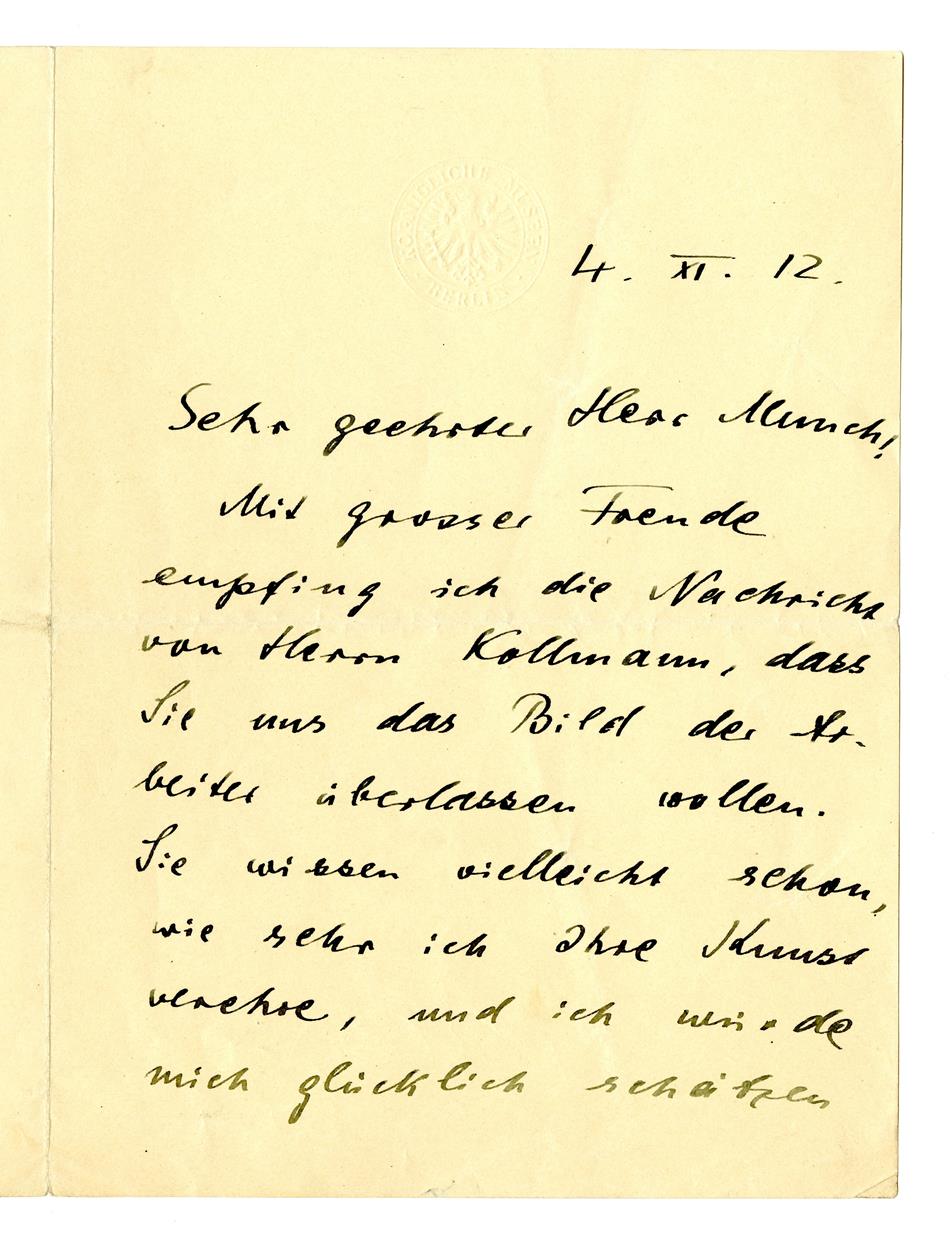 KÖNIGLICHE MUSEEN
BERLIN
4. XI. 12.
Sehr geehrter Herr Munch!
Mit grosser Freude
empfing ich die Nachricht
von Herrn Kollmann, dass
Sie uns das Bild der Ar-
beiter überlassen wollen.
Sie wissen vielleicht schon,
wie sehr ich Ihre Kunst
verehre, und ich würde
mich glücklich schätzen